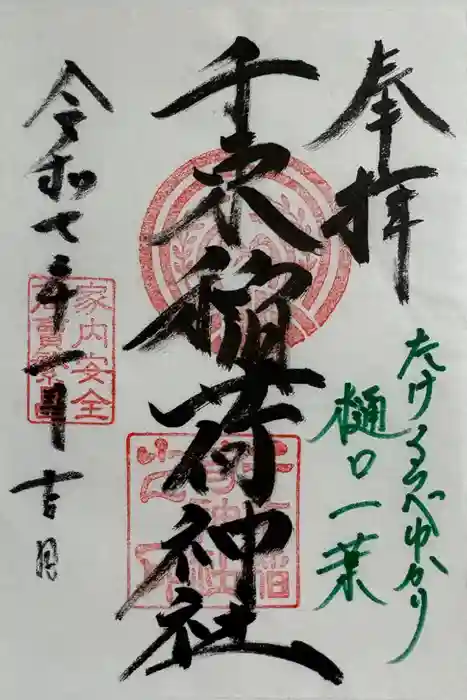 奉拝
たけくらべゆかり
樋口一葉
千束稲荷神社
令和七年一月吉日
家内安全